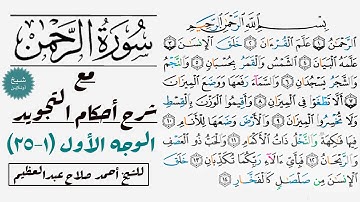 سُورَةُ الرَّحْمَٰن
مع
شرح أحكام التجويد
الوجه الأول (١-٢٥)
للشيخ أحمد صلاح عبدالعظيم
شيخ
بِسْمِ اللَّهِ الرَّحْمَٰنِ الرَّحِيمِ
الرَّحْمَٰنُ ١ عَلَّمَ الْقُرْءَانَ ٢ خَلَقَ الْإِنسَٰنَ ٣
عَلَّمَهُ الْبَيَانَ ٤ الشَّمْسُ وَالْقَمَرُ بِحُسْبَانٍ ٥ وَالنَّجْمُ
وَالشَّجَرُ يَسْجُدَانِ ٦ وَالسَّمَآءَ رَفَعَهَا وَوَضَعَ الْمِيزَانَ
٧ أَلَّا تَطْغَوْا۟ فِى الْمِيزَانِ ٨ وَأَقِيمُوا۟ الْوَزْنَ بِالْقِسْطِ
وَلَا تُخْسِرُوا۟ الْمِيزَانَ ٩ وَالْأَرْضَ وَضَعَهَا لِلْأَنَامِ ١٠
فِيهَا فَٰكِهَةٌ وَالنَّخْلُ ذَاتُ الْأَكْمَامِ ١١ وَالْحَبُّ ذُو الْعَصْفِ
وَالرَّيْحَانُ ١٢ فَبِأَىِّ ءَالَآءِ رَبِّكُمَا تُكَذِّبَانِ ١٣ خَلَقَ
الْإِنسَٰنَ مِن صَلْصَٰلٍ كَالْفَخَّارِ ١٤